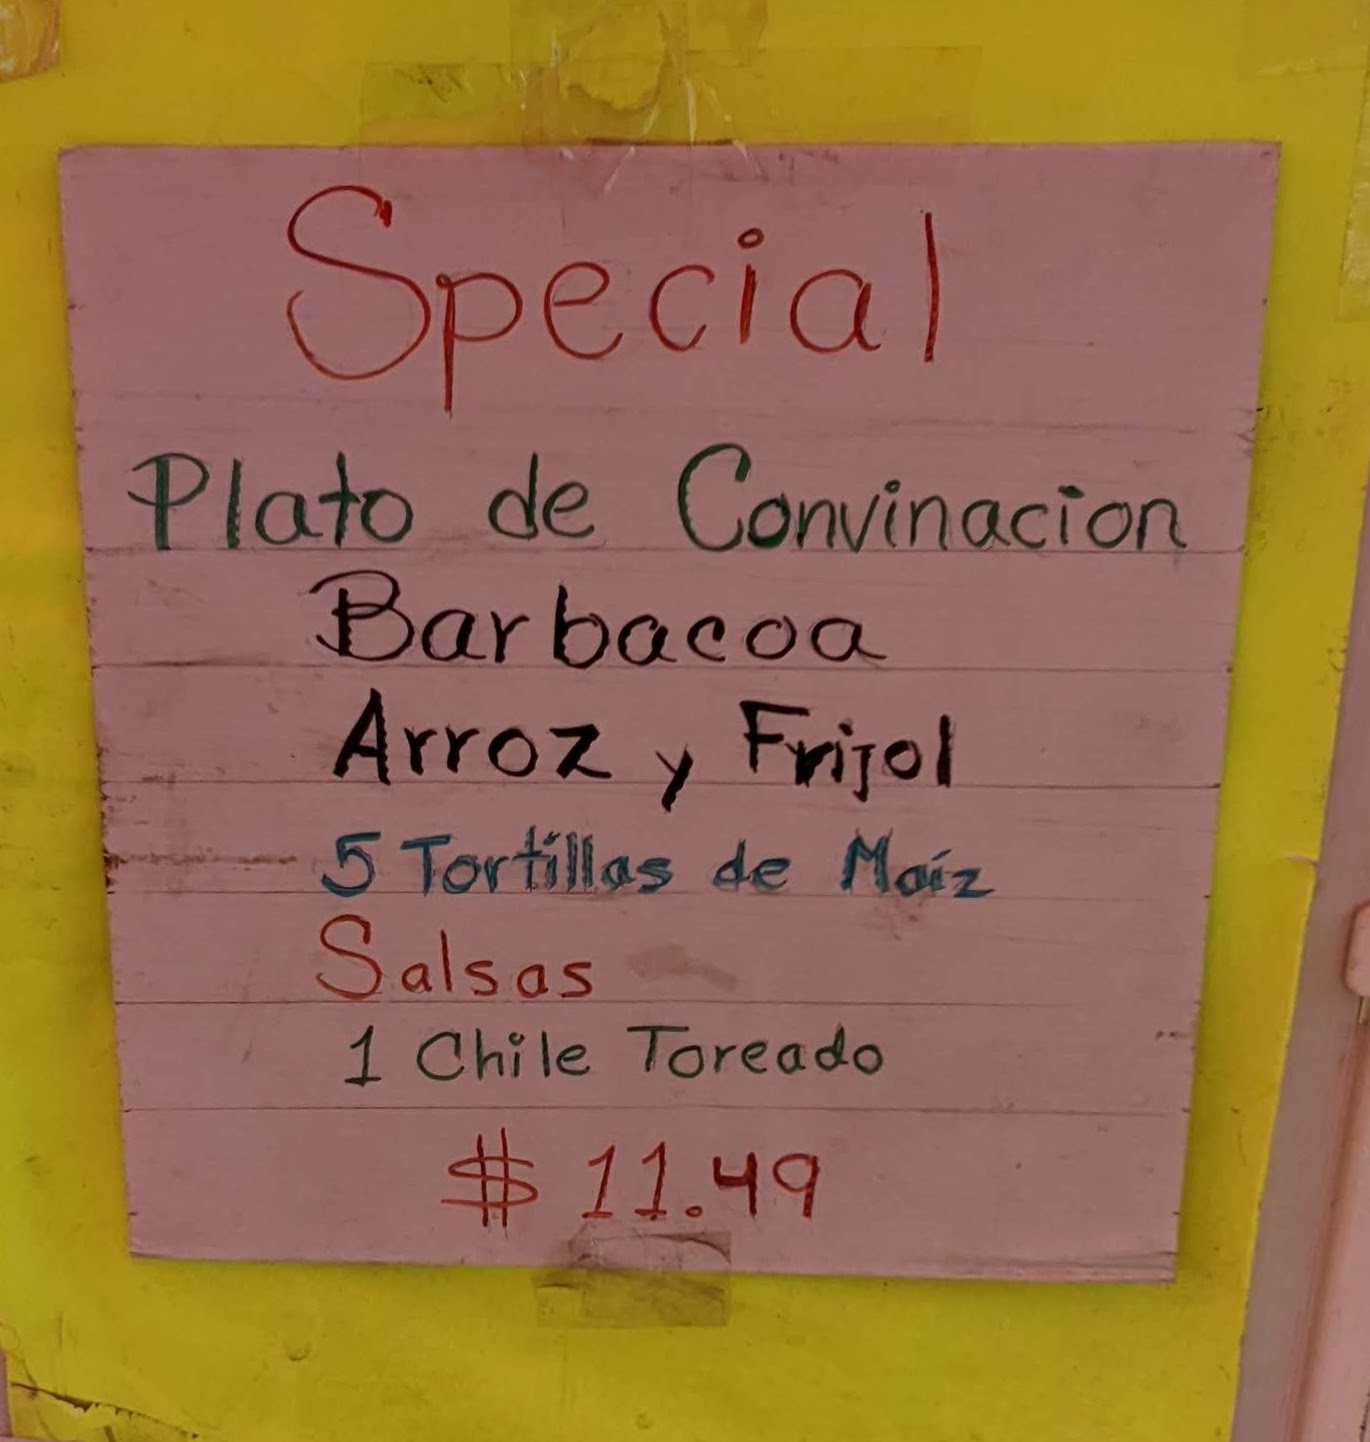 Special
Plato de Convinacion
Barbacoa
Arroz y Frijol
5 Tortillas de Maíz
Salsas
1 Chile Toreado
$ 11.49